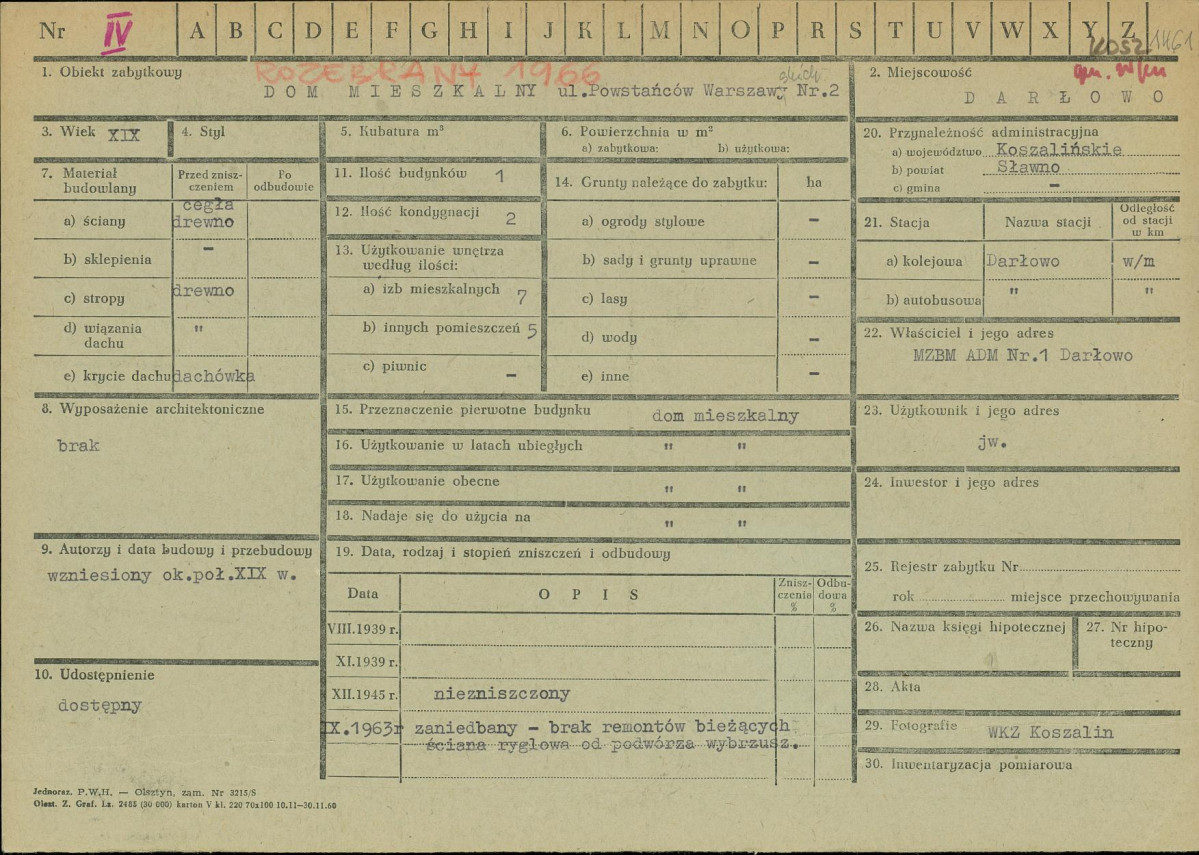 Nr IV A B C D E F G H I J K L M N O P R S T U V W X Y Z 1461
KOSZ.
1. Obiekt zabytkowy ROZEBRANY 1966
DOM MIESZKALNY ul.Powstańców Warszawy Nr.2
2. Miejscowość
DARŁOWO
3. Wiek XIX
4. Styl
5. Kubatura m³
6. Powierzchnia w m²
a) zabytkowa: b) użytkowa:
7. Materiał budowlany
Przed zniszczeniem
Po odbudowie
a) ściany cegła drewno
b) sklepienia –
c) stropy drewno
d) wiązania dachu "
e) krycie dachu dachówka
8. Wyposażenie architektoniczne
brak
9. Autorzy i data budowy i przebudowy
wzniesiony ok.poł.XIX w.
10. Udostępnienie
dostępny
11. Ilość budynków 1
12. Ilość kondygnacji 2
13. Użytkowanie wnętrza
według ilości:
a) izb mieszkalnych 7
b) innych pomieszczeń 5
c) piwnic –
14. Grunty należące do zabytku: ha
a) ogrody stylowe –
b) sady i grunty uprawne –
c) lasy –
d) wody –
e) inne –
15. Przeznaczenie pierwotne budynku dom mieszkalny
16. Użytkowanie w latach ubiegłych " "
17. Użytkowanie obecne " "
18. Nadaje się do użycia na " "
19. Data, rodzaj i stopień zniszczeń i odbudowy
Data OPIS Zniszczenia % Odbudowa %
VIII.1939 r.
XI.1939 r.
XII.1945 r. niezniszczony
IX.1963r zaniedbany – brak remontów bieżących
ściana ryglowa od podwórza wybrzusz.
20. Przynależność administracyjna
a) województwo Koszalińskie
b) powiat Sławno
c) gmina –
21. Stacja Nazwa stacji Odległość od stacji w km
a) kolejowa Darłowo w/m
b) autobusowa " "
22. Właściciel i jego adres
MZBM ADM Nr.1 Darłowo
23. Użytkownik i jego adres
jw.
24. Inwestor i jego adres
25. Rejestr zabytku Nr
rok miejsce przechowywania
26. Nazwa księgi hipotecznej
27. Nr hipoteczny
28. Akta
29. Fotografie WKZ Koszalin
30. Inwentaryzacja pomiarowa
Jednoraz. P.W.H. — Olsztyn, zam. Nr 3215/S
Olszt. Z. Graf. Lz. 2485 (30 000) karton V kl. 220 70x100 10.11—30.11.60